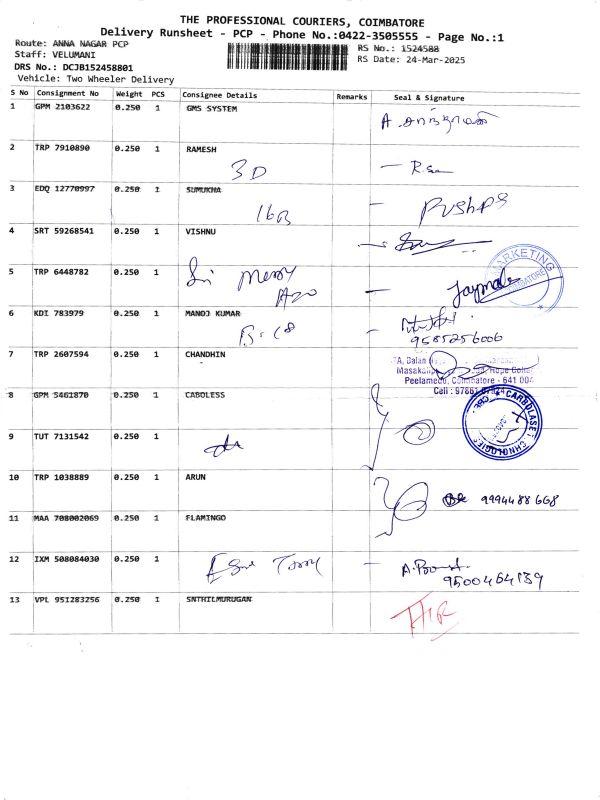 THE PROFESSIONAL COURIERS, COIMBATORE
Delivery Runsheet - PCP - Phone No.:0422-3505555 - Page No.:1
Route: ANNA NAGAR PCP
RS No.: 1524588
Staff: VELUMANI
RS Date: 24-Mar-2025
DRS No.: DCJB152458801
Vehicle: Two Wheeler Delivery
S No Consignment No Weight PCS Consignee Details Remarks Seal & Signature
1 GPM 2103622 0.250 1 GMS SYSTEM
2 TRP 7910890 0.250 1 RAMESH
3D
3 EDQ 12770997 0.250 1 SUMUKHA
16B PUSHPS
4 SRT 59268541 0.250 1 VISHNU
MARKETING
COIMBATORE
5 TRP 6448782 0.250 1
Jaymala
6 KDI 783979 0.250 1 MANOJ KUMAR
9585256006
7 TRP 2607594 0.250 1 CHANDHIN
Peelamedu, Coimbatore - 641 004
8 GPM 5461870 0.250 1 CABOLESS
9 TUT 7131542 0.250 1
10 TRP 1038889 0.250 1 ARUN
9994488668
11 MAA 708002069 0.250 1 FLAMINGO
12 IXM 508084030 0.250 1
9500464139
13 VPL 951283256 0.250 1 SNTHILMURUGAN